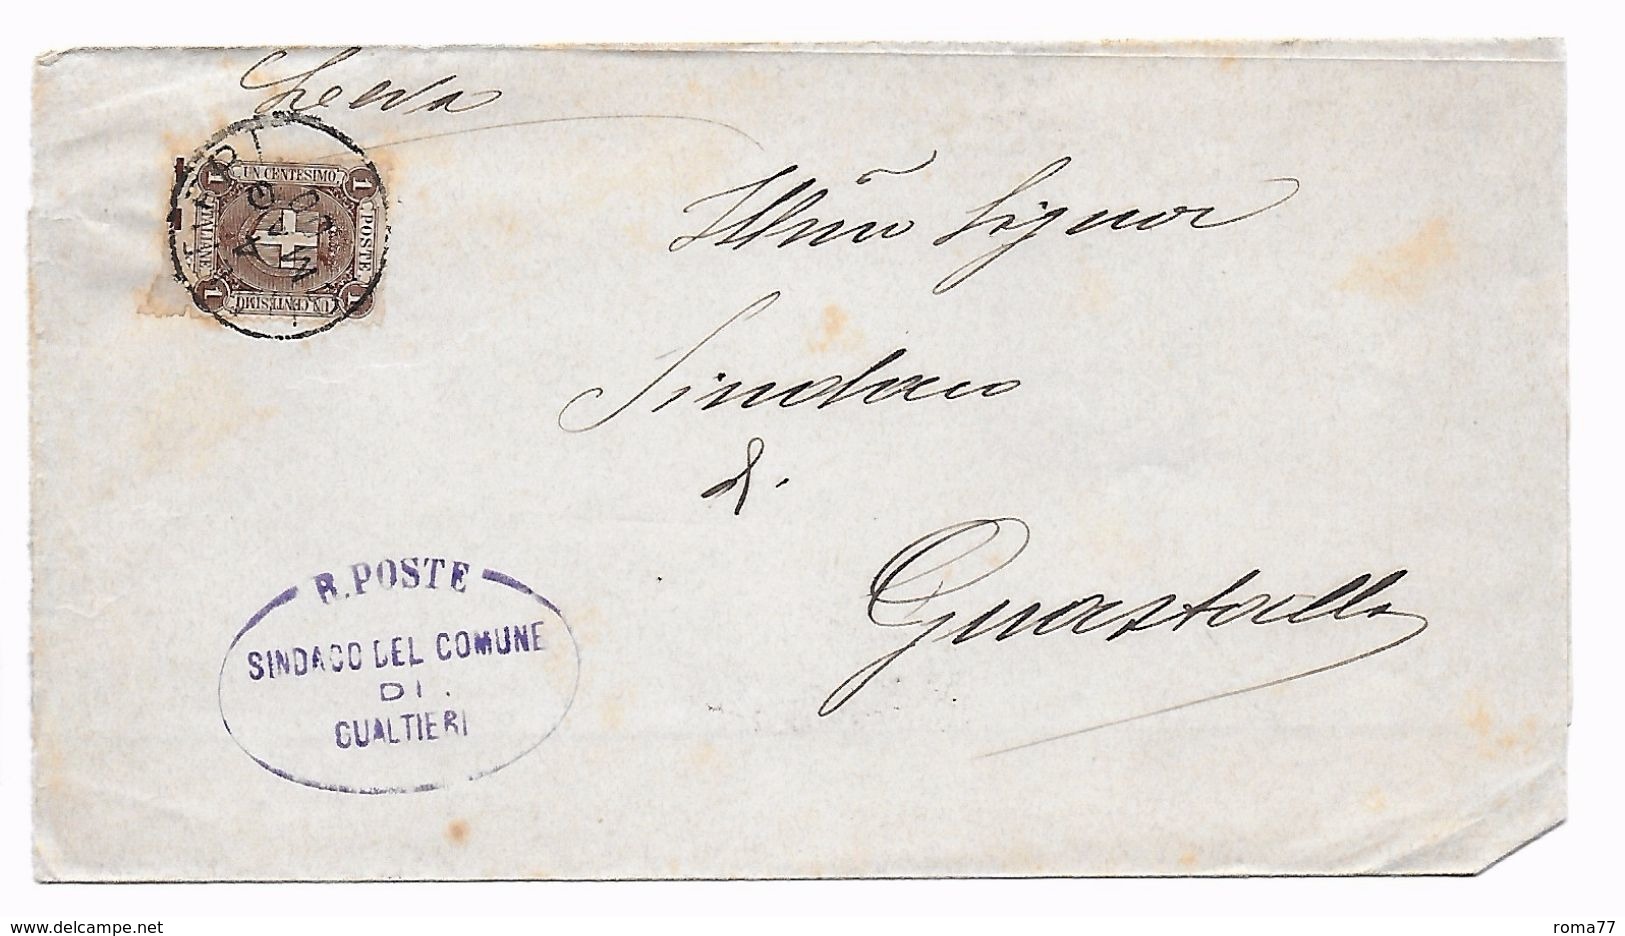 Leva
UN CENTESIMO
1
1
POSTE
ITALIANE
1
1
UN CENTESIMO
Illmo Signor
Sindaco
di
Guastalla
R. POSTE
SINDACO DEL COMUNE
DI
GUALTIERI
www.delcampe.net
roma77